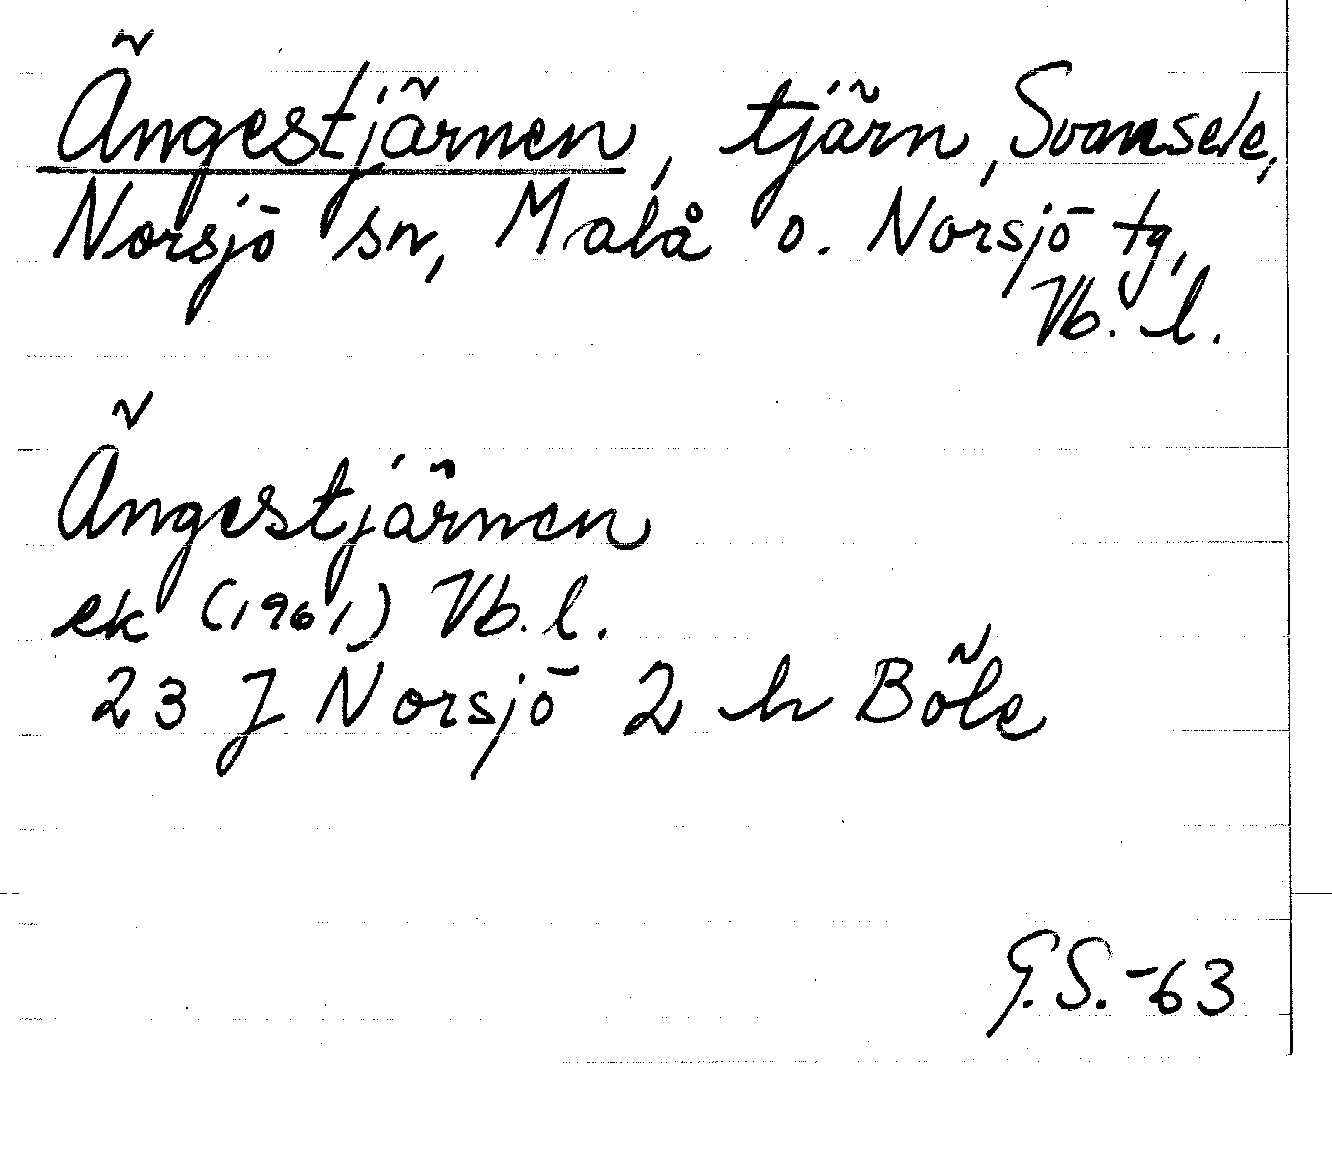 Ängestjärnen, tjärn, Svansele,
Norsjö sn, Malå o. Norsjö tg,
Vb. l.
Ängestjärnen
ek (1961) Vb. l.
23 J Norsjö 2 h Böle
G.S. -63